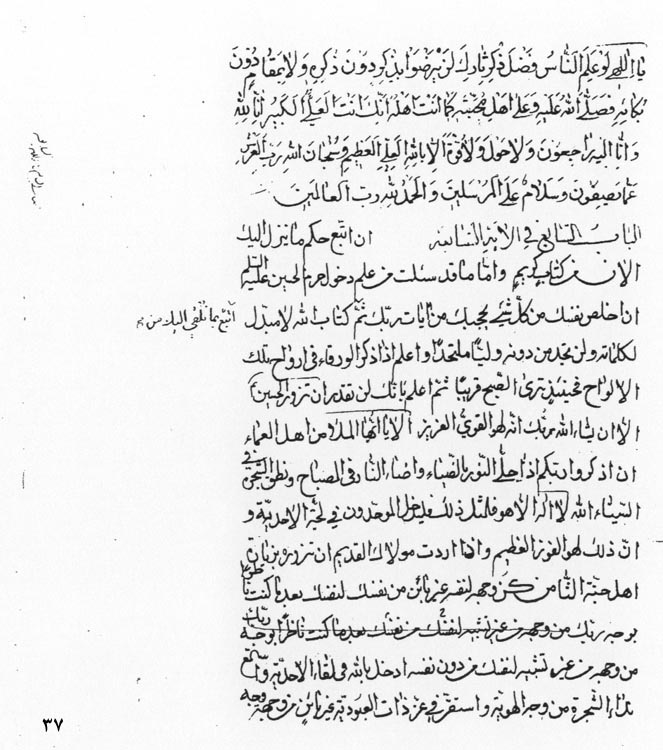 يا اللهي لو علم الناس فضل ذكر ثارك لن يرضوا بذكر دون ذكره ولا بمقام دون
مكانه فصلّ اللهم عليه وعلى اهل محبته كما انت اهله انك انت العلي الكبير انا لله
وانا اليه راجعون ولا حول ولا قوة الا بالله العلي العظيم وسبحان الله رب العرش
عما يصفون وسلام على المرسلين والحمد لله رب العالمين
الباب السابع في الآية السابعة ان اتبع حكم ما نزل اليك
الان من كتاب كريم واما ما قد سئلت من علم دخول حرم الحسين عليه السلم
ان اخلص نفسك من كل شيء يحجبك من آيات ربك ثم كتاب الله لا مبدل
اتبع بما نلقي اليك من
لكلماته ولن تجد من دونه وليا ملتحدا واعلم اذا ذكر الورقاء في ارواح تلك
الالواح فحينئذ ترى الصبح قريبا ثم اعلم بانك لن تقدر ان تزور الحسين
الا ان يشاء الله ربك انه لهو القوي العزيز الا يا ايها الملأ من اهل العماء
ان اذكروا ربكم اذا جلّى النور بالضياء واضاء النار في المصباح ونطق التجلي في
السيناء الله لا اله الا هو فلمثل ذلك فليدخل الموحدون في لجة الاحدية و
ان ذلك لهو الفوز العظيم واذا اردت مولاك القديم ان تزوره بزيارة
اهل جنة الثامن كن وجهه لنفسه غير بائن من نفسك لنفسك بعد ما كنت ناظرا
بوجه ربك من وجهه من غير تشبيه لنفسك من نفسك بعد ما كنت ناظرا بوجه ربك
من وجهه من غير تشبيه لنفسك من دون نفسه ادخل بالله في لقاء الاحدية واستمع
نداء الشجرة من وجه الهوية واستقر في عز ذات العبودية غير بائن من وجهه وجه
٣٧